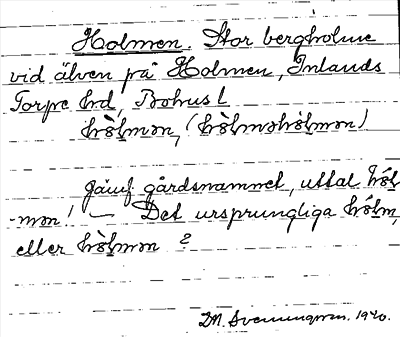 Holmen. Stor bergholme
vid älven på Holmen, Inlands
Torpe hd, Bohusl
hòlmən, (hòlməhòlmən)
Jämf gårdsnamnet, uttal hól-
-mən! — Det ursprungliga hólm,
eller hòlmən?
D.M. Svenningson. 1940.